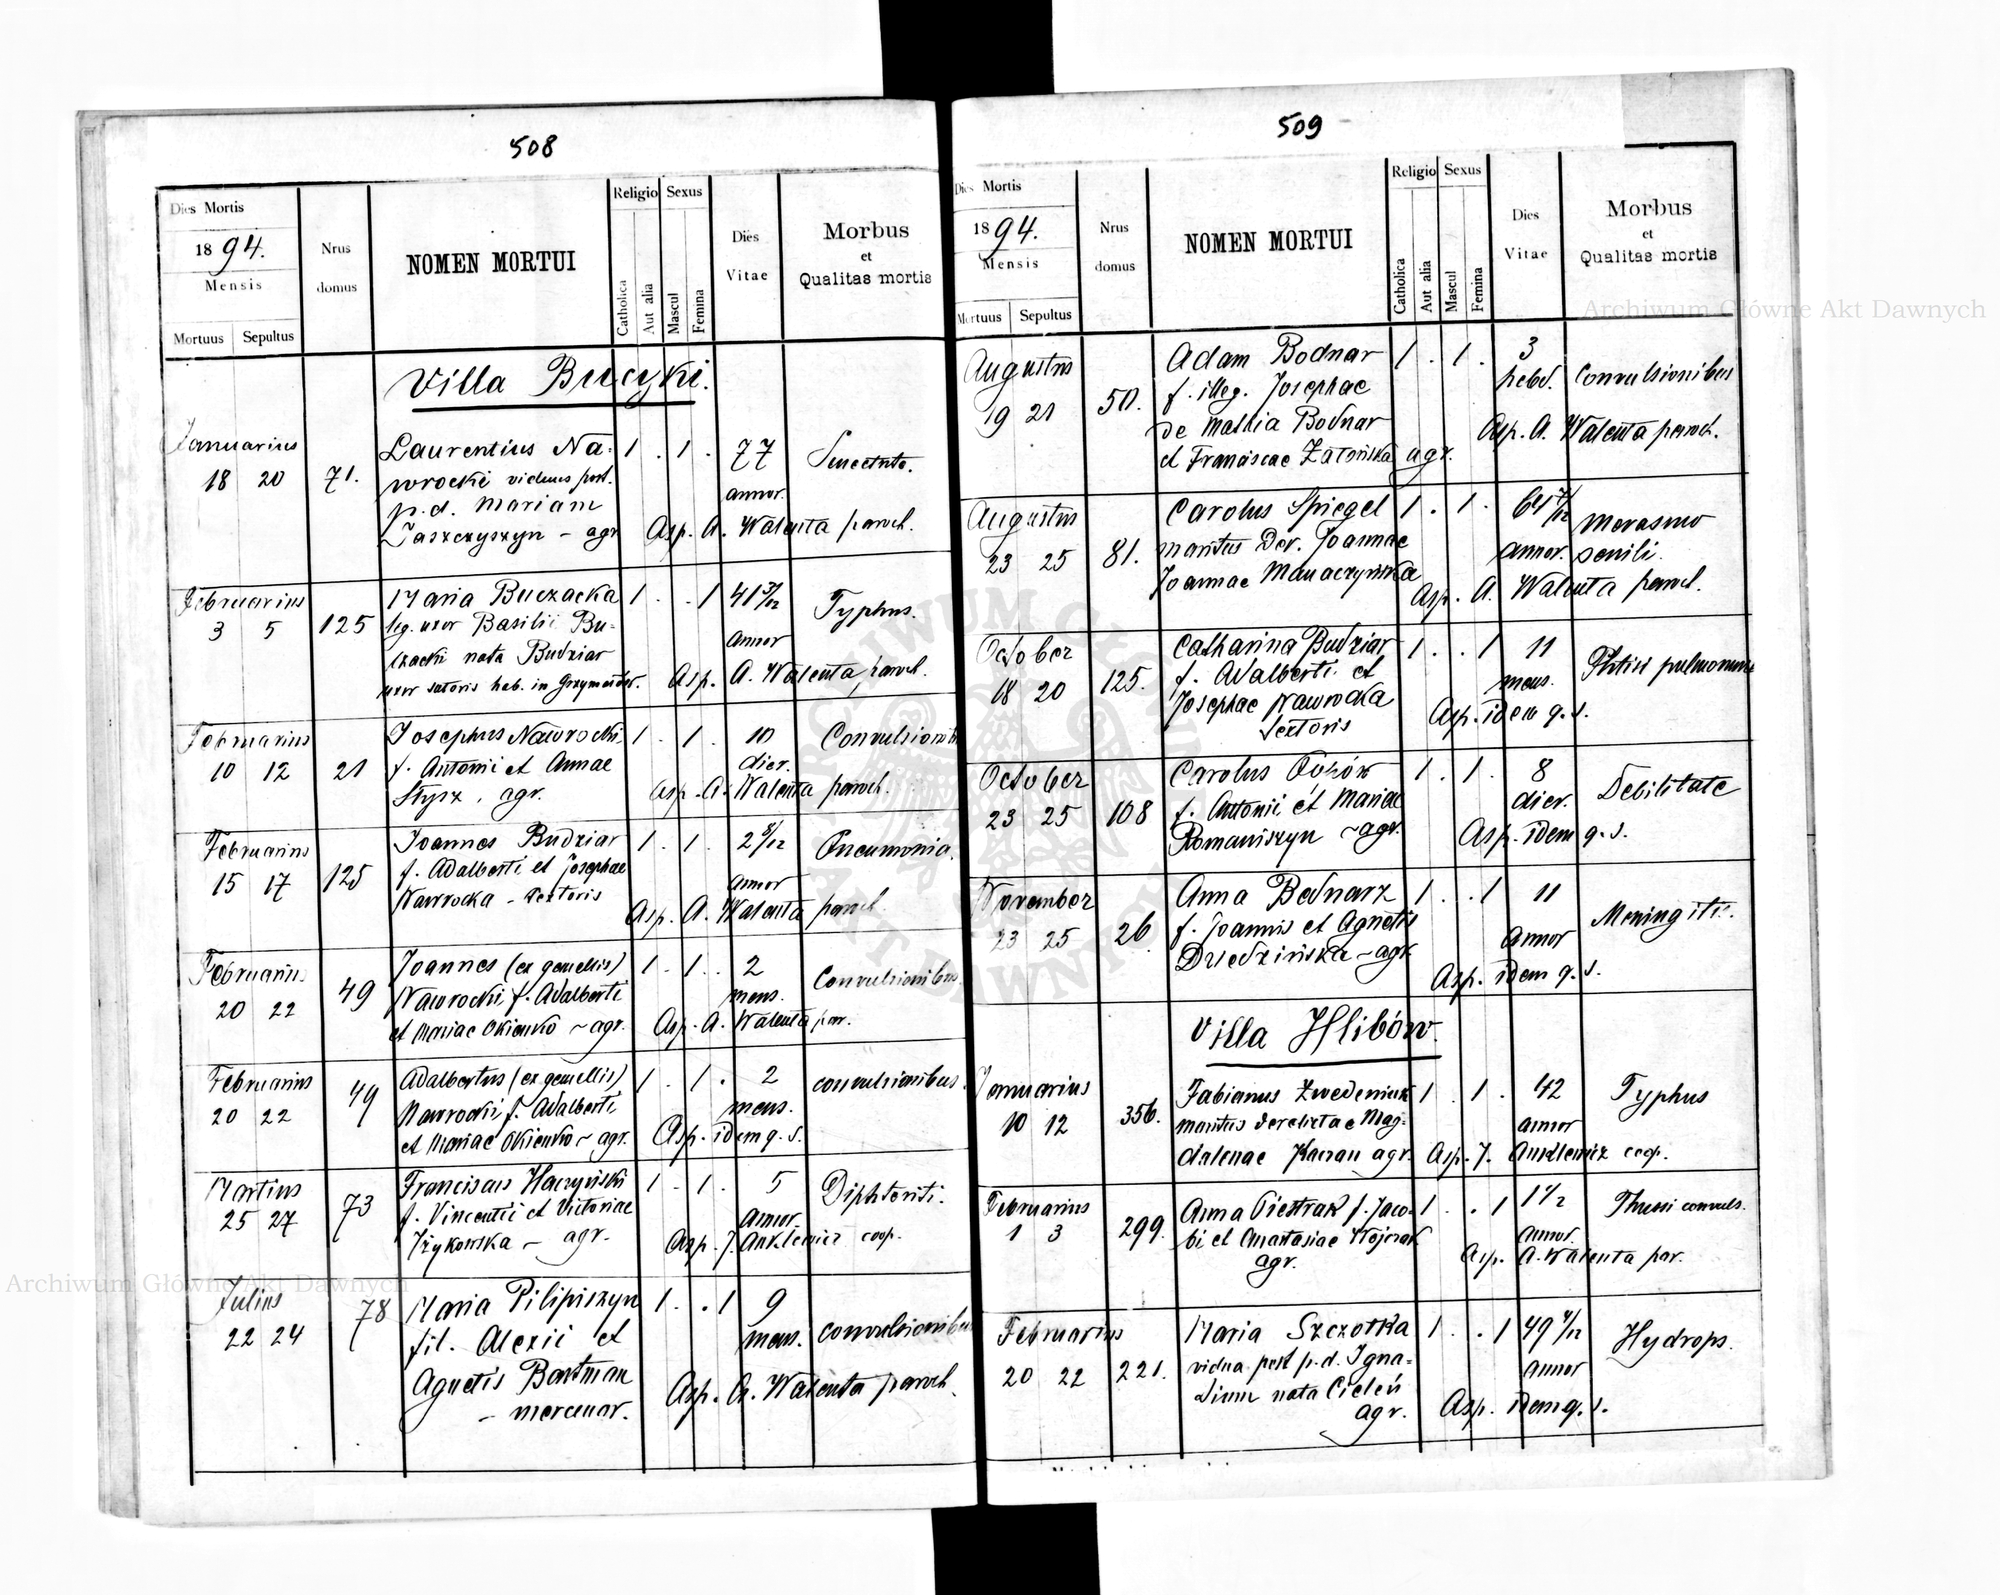 508
Dies Mortis
1894.
Mensis
Mortuus Sepultus
Nrus domus
NOMEN MORTUI
Religio
Catholica
Aut alia
Sexus
Mascul
Femina
Dies Vitae
Morbus
et
Qualitas mortis
Villa Buczki.
Januarius
18 20 71.
Laurentius Na-
wrocki viduus post.
p. d. Mariam
Laszczyszyn - agr
1 . 1 . 77
annor.
Asp. A. Walenta paroch.
Februarius
3 5 125
Maria Buczacka
leg. uxor Basilii Bu-
czacki nata Budziar
uxor sutoris hab. in
1 . . 1 41 3/12
annor
Typhus.
Asp. A. Walenta paroch.
Februarius
10 12 21
Josephus Nawrocki
f. Antonii et Annae
Stysz, agr.
1 . 1 . 10
dier.
Asp. A. Walenta paroch.
Februarius
15 17 125
Joannes Budziar
f. Adalberti et Josephae
Nawrocka - textoris
1 . 1 . 2 8/12
annor
Pneumonia.
Asp. A. Walenta paroch
Februarius
20 22 49
Joannes (ex gemellis)
Nawrocki f. Adalberti
et Mariae Okienko - agr.
1 . 1 . 2
mens.
Convulsionibus
Asp. A. Walenta par.
Februarius
20 22 49
Adalbertus (ex gemellis)
Nawrocki f. Adalberti
et Mariae Okienko - agr.
1 . 1 . 2
mens.
convulsionibus.
Asp. idem q. s.
Martius
25 27 73
Franciscus Haczyński
f. Vincentii et Victoriae
Żykowska - agr.
1 . 1 . 5
Annor.
Diphteriti.
Asp. J. Anklewicz coop.
Julius
22 24 78
Maria Pilipiszyn
fil. Alexii et
Agnetis Bartman
- mercenar.
1 . . 1 9
mens.
convulsionibus
Asp. A. Walenta paroch.
509
Dies Mortis
1894.
Mensis
Mortuus Sepultus
Nrus domus
NOMEN MORTUI
Religio
Catholica
Aut alia
Sexus
Mascul
Femina
Dies Vitae
Morbus
et
Qualitas mortis
Augustus
19 21 50.
Adam Bodnar
f. illeg. Josephae
de Mathia Bodnar
et Franciscae agr.
1 . 1 . 3
hebd.
Convulsionibus
Asp. A. Walenta paroch.
Augustus
23 25 81.
Carolus Spiegel
maritus Der. Joannae
Joannae
1 . 1 .
annor.
Marasmo
senili.
Asp. A. Walenta paroch.
October
18 20 125.
Catharina Budziar
f. Adalberti et
Josephae Nawrocka
textoris
1 . . 1 11
mens.
Phtisi pulmonum
Asp. idem q. s.
October
23 25 108
Carolus
f. Antonii et Mariae
Romaniszyn - agr.
1 . 1 . 8
dier.
Debilitate
Asp. idem q. s.
November
23 25 26
Anna Bednarz
f. Joannis et Agnetis
Dziedzińska - agr
1 . . 1 11
Annor
Meningitis.
Asp. idem q. s.
Villa Hlibów.
Januarius
10 12 356.
Fabianus Zwedeniuk
maritus derelictae Mag-
dalenae agr.
1 . 1 . 42
annor
Typhus
Asp. J. Anklewicz coop.
Februarius
1 3 299.
Anna Pietrak f. Jaco-
bi et Anastasiae
agr.
1 . . 1 1 1/2
annor.
Tussi convuls.
Asp. A. Walenta par.
Februarius
20 22 221.
Maria Szczotka
vidua post p. d. Igna-
tium nata Cieleń
agr.
1 . . 1 49
annor
Hydrops.
Asp. idem q. s.
Archiwum Główne Akt Dawnych
Archiwum Główne Akt Dawnych